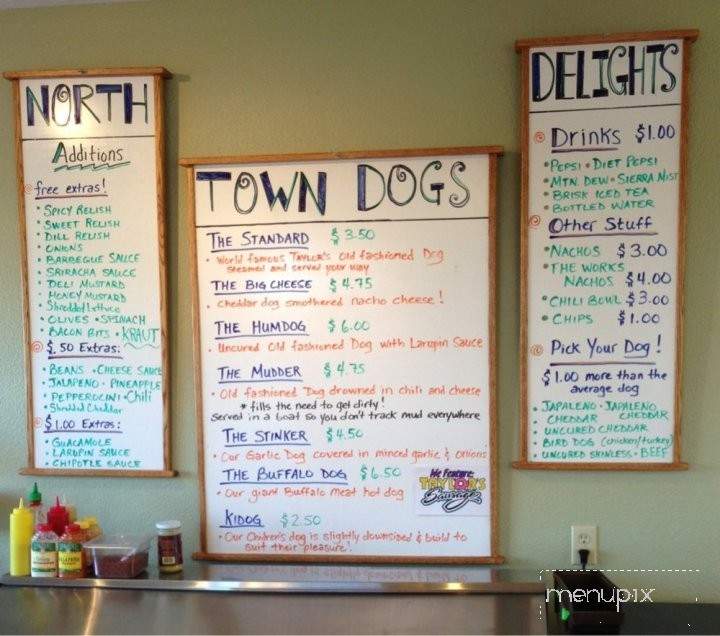 NORTH
Additions
free extras!
• SPICY RELISH
• SWEET RELISH
• DILL RELISH
• ONIONS
• BARBEQUE SAUCE
• SRIRACHA SAUCE
• DELI MUSTARD
• HONEY MUSTARD
• Shredded Lettuce
• OLIVES • SPINACH
• BACON BITS • KRAUT
$.50 Extras:
• BEANS • CHEESE SAUCE
• JALAPENO • PINEAPPLE
• PEPPEROCINI • Chili
• Shredded Cheddar
$1.00 Extras:
• GUACAMOLE
• LARUPIN SAUCE
• CHIPOTLE SAUCE
TOWN DOGS
THE STANDARD $3.50
• World famous TAYLOR'S Old fashioned Dog
steamed and served your way
THE BIG CHEESE $4.75
• Cheddar dog smothered nacho cheese!
THE HUMDOG $6.00
• Uncured Old fashioned Dog with Larupin Sauce
THE MUDDER $4.75
• Old fashioned Dog drowned in chili and cheese
* fills the need to get dirty!
Served in a boat so you don't track mud everywhere
THE STINKER $4.50
• Our Garlic Dog covered in minced garlic & onions
THE BUFFALO DOG $6.50
• Our giant Buffalo meat hot dog
We Feature:
TAYLOR'S
Sausage
KIDOG $2.50
• Our Children's dog is slightly downsized & build to
suit their "pleasure".
DELIGHTS
Drinks $1.00
• PEPSI • DIET PEPSI
• MTN DEW • SIERRA MIST
• BRISK ICED TEA
• BOTTLED WATER
Other Stuff
• NACHOS $3.00
• THE WORKS
NACHOS $4.00
• CHILI BOWL $3.00
• CHIPS $1.00
Pick Your Dog!
$1.00 more than the
average dog
• JAPALENO • JAPALENO
CHEDDAR CHEDDAR
• UNCURED CHEDDAR
• BIRD DOG (chicken/turkey)
• UNCURED SKINLESS • BEEF
menupix